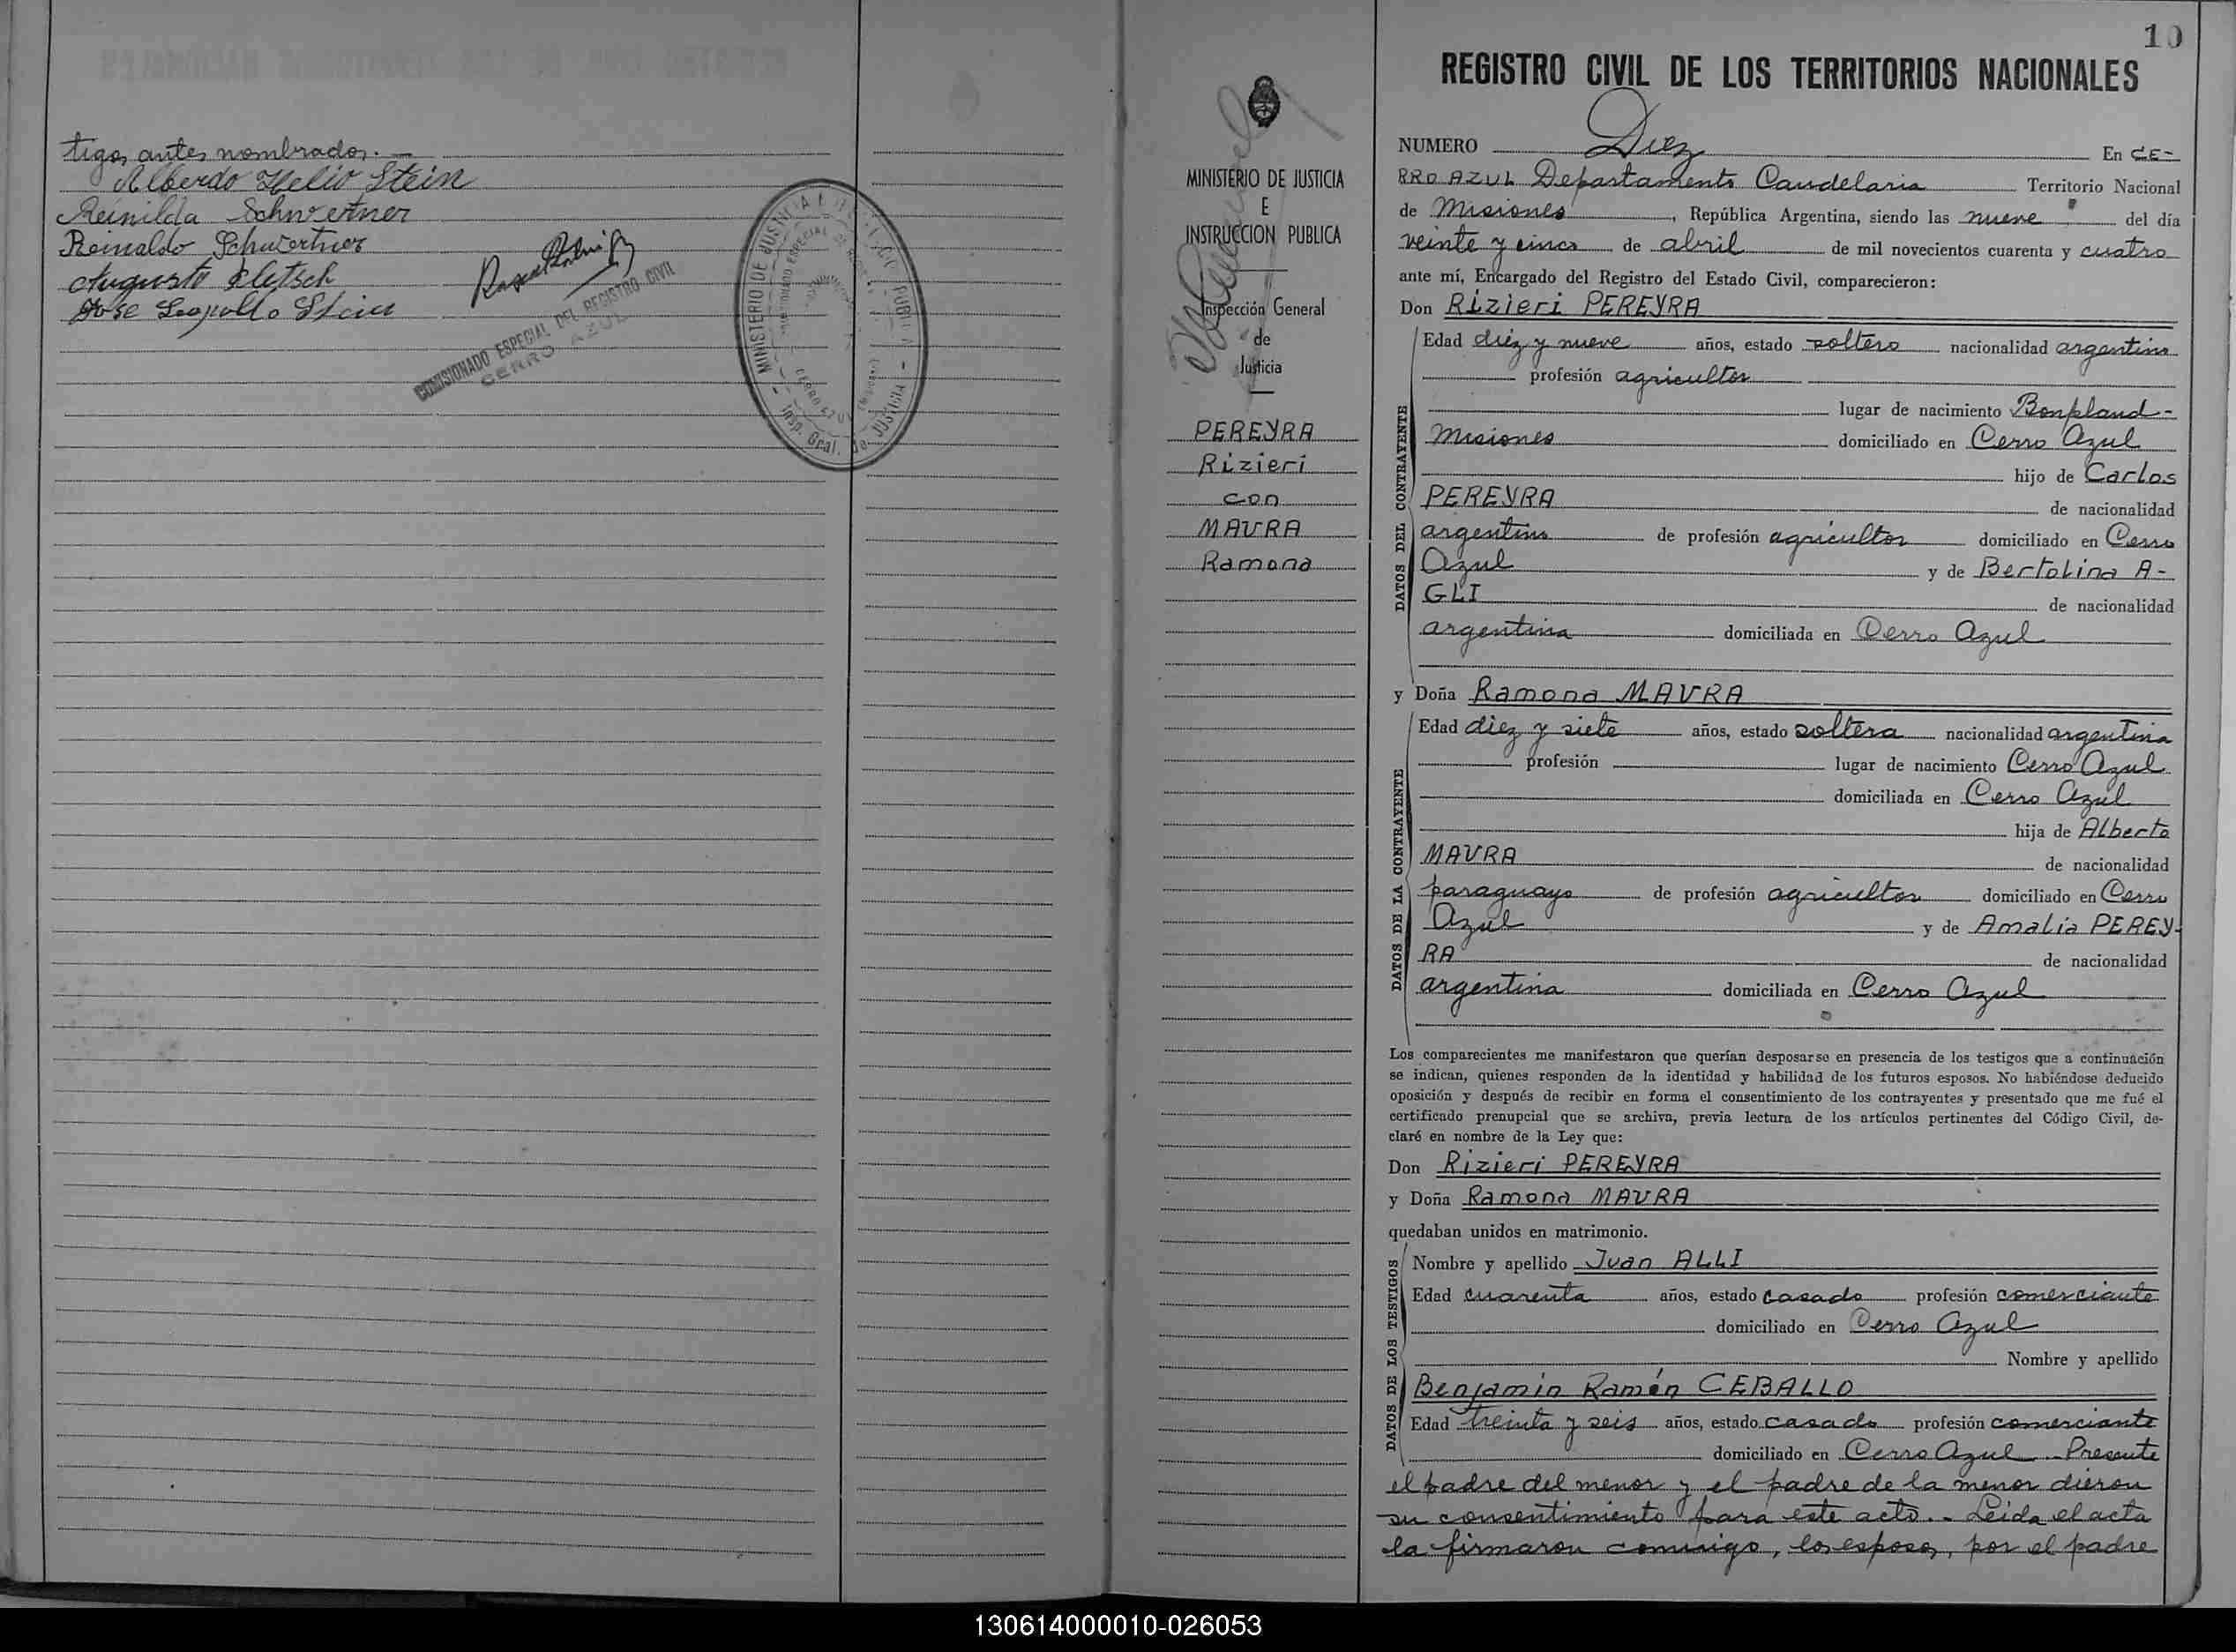 tigos antes nombrados.-
Alberdo Helio Stein
Reinilda Schwertner
Reinaldo Schwertner
Augusto Kletsch
José Leopoldo Stein
COMISIONADO ESPECIAL DEL REGISTRO CIVIL
CERRO AZUL
MINISTERIO DE JUSTICIA E INSTRUCCION PUBLICA - Insp. Gral. de JUSTICIA -
MINISTERIO DE JUSTICIA
E
INSTRUCCION PUBLICA
Inspección General
de
Justicia
PEREYRA
Rizieri
con
MAURA
Ramona
10
REGISTRO CIVIL DE LOS TERRITORIOS NACIONALES
NUMERO Diez En CE-
RRO AZUL Departamento Candelaria Territorio Nacional
de Misiones, República Argentina, siendo las nueve del día
veinte y cinco de abril de mil novecientos cuarenta y cuatro
ante mí, Encargado del Registro del Estado Civil, comparecieron:
Don Rizieri PEREYRA
DATOS DEL CONTRAYENTE
Edad diez y nueve años, estado soltero nacionalidad argentino
profesión agricultor
lugar de nacimiento Bonpland-
Misiones domiciliado en Cerro Azul
hijo de Carlos
PEREYRA de nacionalidad
argentino de profesión agricultor domiciliado en Cerro
Azul y de Bertolina A-
GLI de nacionalidad
argentina domiciliada en Cerro Azul
y Doña Ramona MAURA
DATOS DE LA CONTRAYENTE
Edad diez y siete años, estado soltera nacionalidad argentina
profesión lugar de nacimiento Cerro Azul
domiciliada en Cerro Azul
hija de Alberto
MAURA de nacionalidad
paraguayo de profesión agricultor domiciliado en Cerro
Azul y de Amalia PEREY-
RA de nacionalidad
argentina domiciliada en Cerro Azul
Los comparecientes me manifestaron que querían desposarse en presencia de los testigos que a continuación
se indican, quienes responden de la identidad y habilidad de los futuros esposos. No habiéndose deducido
oposición y después de recibir en forma el consentimiento de los contrayentes y presentado que me fué el
certificado prenupcial que se archiva, previa lectura de los artículos pertinentes del Código Civil, de-
claré en nombre de la Ley que:
Don Rizieri PEREYRA
y Doña Ramona MAURA
quedaban unidos en matrimonio.
DATOS DE LOS TESTIGOS
Nombre y apellido Juan ALLI
Edad cuarenta años, estado casado profesión comerciante
domiciliado en Cerro Azul
Nombre y apellido
Benjamin Ramón CEBALLO
Edad treinta y seis años, estado casado profesión comerciante
domiciliado en Cerro Azul.-Presente
el padre del menor y el padre de la menor dieron
su consentimiento para este acto.- Leida el acta
la firmaron conmigo, los esposos, por el padre
130614000010-026053